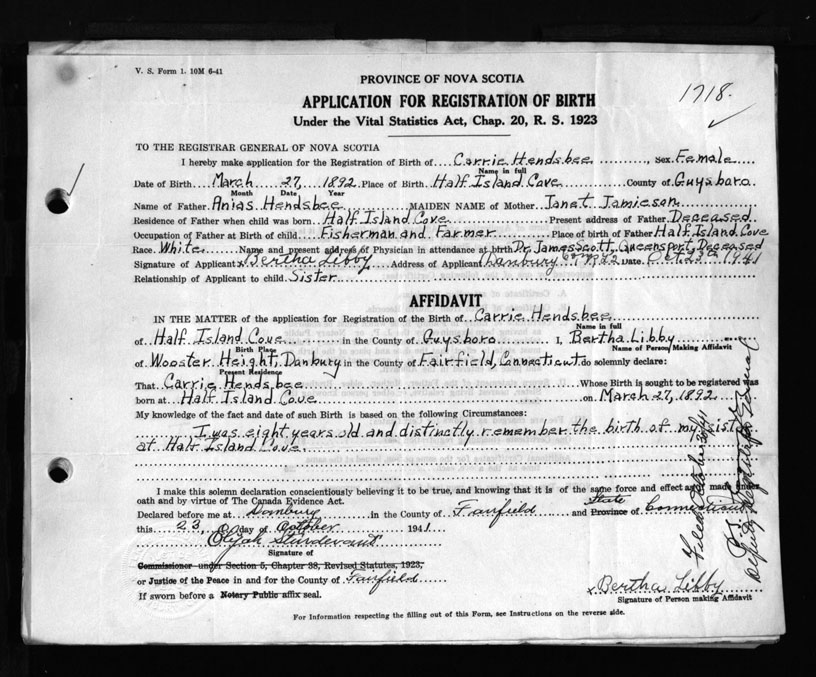 V. S. Form 1. 10M 6-41
PROVINCE OF NOVA SCOTIA
1718.
APPLICATION FOR REGISTRATION OF BIRTH
Under the Vital Statistics Act, Chap. 20, R. S. 1923
TO THE REGISTRAR GENERAL OF NOVA SCOTIA
I hereby make application for the Registration of Birth of Carrie Hendsbee, Sex Female
Name in full
Date of Birth March 27, 1892 Place of Birth Half Island Cove County of Guysboro
Month Date Year
Name of Father Anias Hendsbee MAIDEN NAME of Mother Janet Jamieson
Residence of Father when child was born Half Island Cove Present address of Father Deceased
Occupation of Father at Birth of child Fisherman and Farmer Place of birth of Father Half Island Cove
Race White Name and present address of Physician in attendance at birth Dr. James Scott, Queensport, Deceased
Signature of Applicant x Bertha Libby Address of Applicant Danbury Date Oct 23rd 1941
Relationship of Applicant to child Sister
AFFIDAVIT
IN THE MATTER of the application for Registration of Birth of Carrie Hendsbee
Name in full
of Half Island Cove in the County of Guysboro I, Bertha Libby
Birth Place Name of Person Making Affidavit
of Wooster Height, Danbury in the County of Fairfield, Connecticut do solemnly declare:
Present Residence
That Carrie Hendsbee Whose Birth is sought to be registered was
born at Half Island Cove on March 27, 1892
My knowledge of the fact and date of such Birth is based on the following Circumstances:
I was eight years old and distinctly remember the birth of my sister
at Half Island Cove.
I make this solemn declaration conscientiously believing it to be true, and knowing that it is of the same force and effect as if made under
oath and by virtue of The Canada Evidence Act.
State
Declared before me at Danbury in the County of Fairfield and Province of Connecticut
this 23, day of October 1941
Elijah Sturdevant
Signature of
Commissioner under Section 5, Chapter 38, Revised Statutes, 1923,
or Justice of the Peace in and for the County of Fairfield
If sworn before a Notary Public affix seal.
x Bertha Libby
Signature of Person making Affidavit
For Information respecting the filling out of this Form, see Instructions on the reverse side.
Filed October
Deputy Registrar General